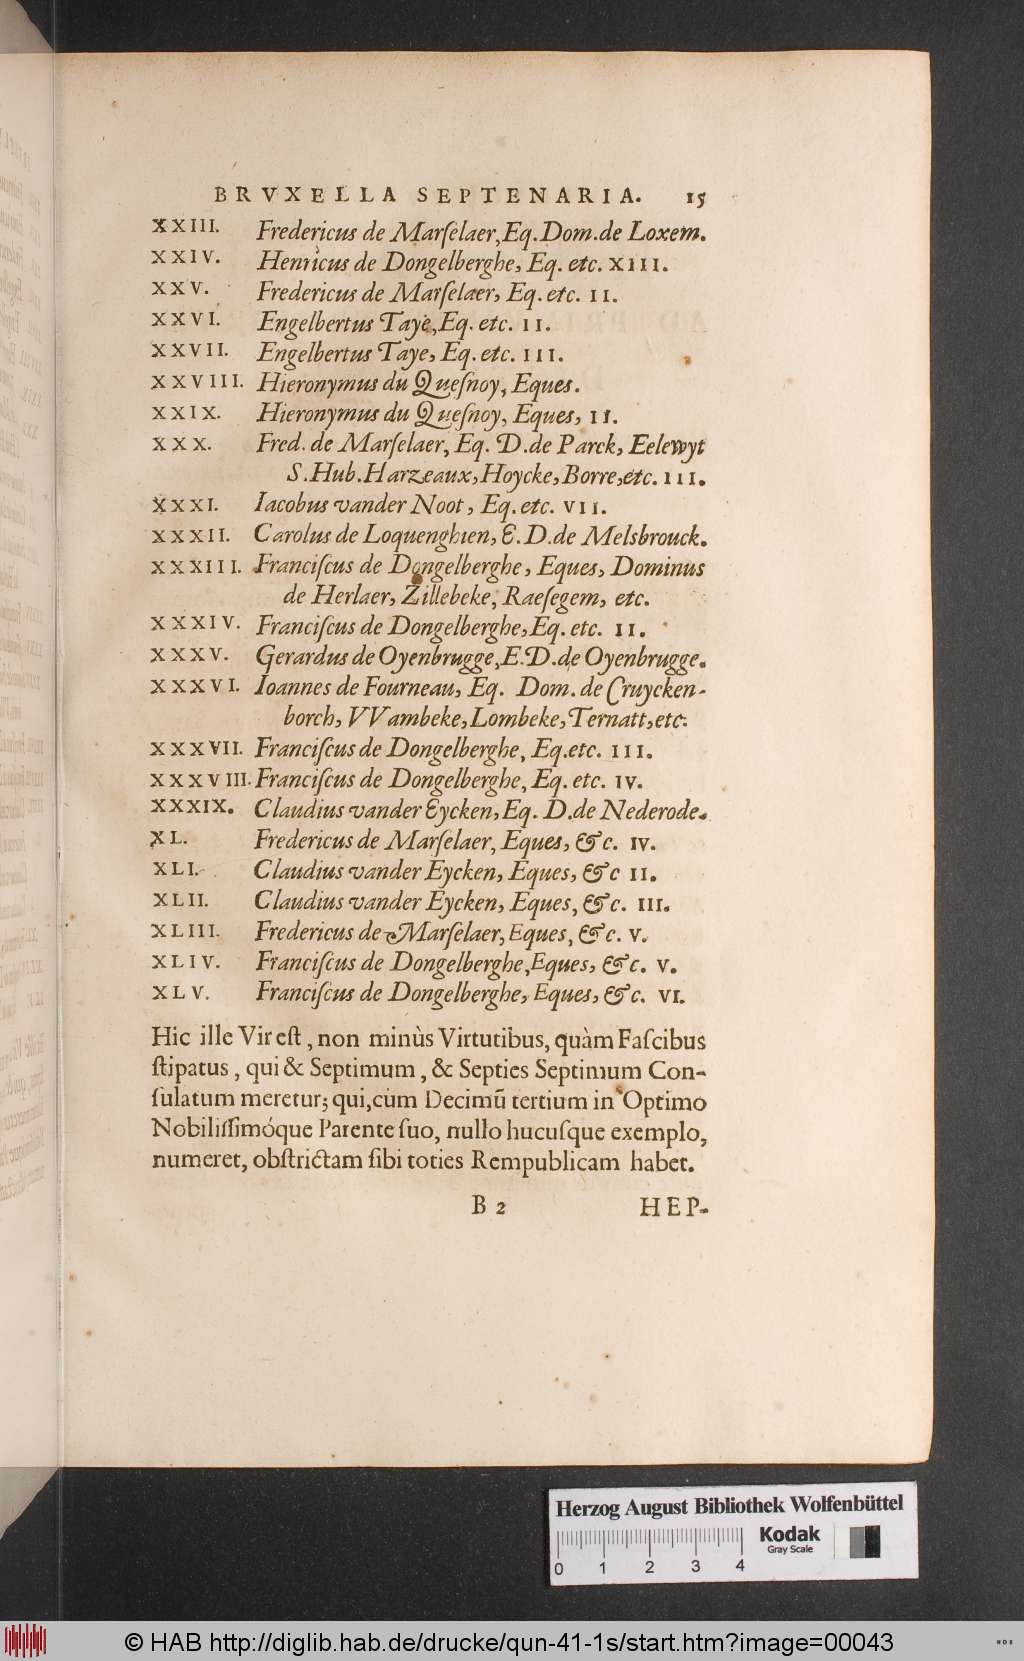 BRVXELLA SEPTENARIA. 15
XXIII. Fredericus de Marſelaer, Eq. Dom. de Loxem.
XXIV. Henricus de Dongelberghe, Eq. etc. XIII.
XXV. Fredericus de Marſelaer, Eq. etc. II.
XXVI. Engelbertus Taye, Eq. etc. II.
XXVII. Engelbertus Taye, Eq. etc. III.
XXVIII. Hieronymus du Queſnoy, Eques.
XXIX. Hieronymus du Queſnoy, Eques, II.
XXX. Fred. de Marſelaer, Eq. D. de Parck, Eelewyt
S. Hub. Harzeaux, Hoycke, Borre, etc. III.
XXXI. Iacobus vander Noot, Eq. etc. VII.
XXXII. Carolus de Loquenghien, E. D. de Melsbrouck.
XXXIII. Franciſcus de Dongelberghe, Eques, Dominus
de Herlaer, Zillebeke, Raeſegem, etc.
XXXIV. Franciſcus de Dongelberghe, Eq. etc. II.
XXXV. Gerardus de Oyenbrugge, E. D. de Oyenbrugge.
XXXVI. Ioannes de Fourneau, Eq. Dom. de Cruycken-
borch, VVambeke, Lombeke, Ternatt, etc.
XXXVII. Franciſcus de Dongelberghe, Eq. etc. III.
XXXVIII. Franciſcus de Dongelberghe, Eq. etc. IV.
XXXIX. Claudius vander Eycken, Eq. D. de Nederode.
XL. Fredericus de Marſelaer, Eques, &c. IV.
XLI. Claudius vander Eycken, Eques, &c II.
XLII. Claudius vander Eycken, Eques, &c. III.
XLIII. Fredericus de Marſelaer, Eques, &c. V.
XLIV. Franciſcus de Dongelberghe, Eques, &c. V.
XLV. Franciſcus de Dongelberghe, Eques, &c. VI.
Hic ille Vir eſt, non minùs Virtutibus, quàm Faſcibus
ſtipatus, qui & Septimum, & Septies Septimum Con-
ſulatum meretur; qui, cùm Decimũ tertium in Optimo
Nobiliſſimóque Parente ſuo, nullo hucuſque exemplo,
numeret, obſtrictam ſibi toties Rempublicam habet.
B 2 HEP-
Herzog August Bibliothek Wolfenbüttel
0 1 2 3 4
Kodak
Gray Scale
© HAB http://diglib.hab.de/drucke/qun-41-1s/start.htm?image=00043